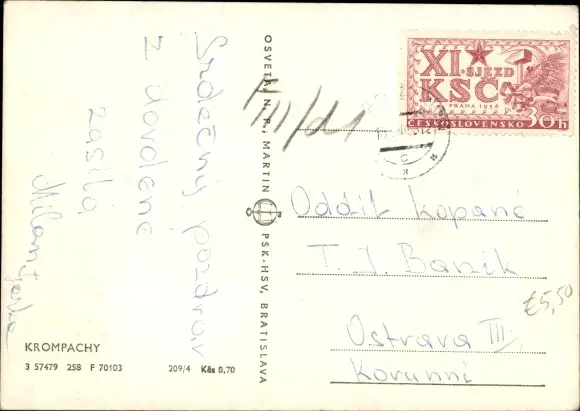 Srdečný pozdrav
z dovolené
zasílá
Milan
KROMPACHY
3 57479 258 F 70103 209/4 Kčs 0,70
OSVETA, N. P., MARTIN PSK-HSV, BRATISLAVA
XI. SJEZD
KSČ
PRAHA 1958
ČESKOSLOVENSKO 30h
Oddíl kopané
T. J. Baník
Ostrava III,
Korunní
€5,50